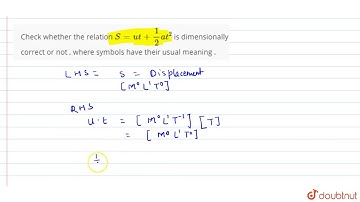 Check whether the relation S = ut + 1/2 at² is dimensionally
correct or not . where symbols have their usual meaning .
LHS = S = Displacement
[M⁰ L¹ T⁰]
RHS
u·t = [M⁰ L¹ T⁻¹] [T]
= [M⁰ L¹ T⁰]
1/2
doubtnut